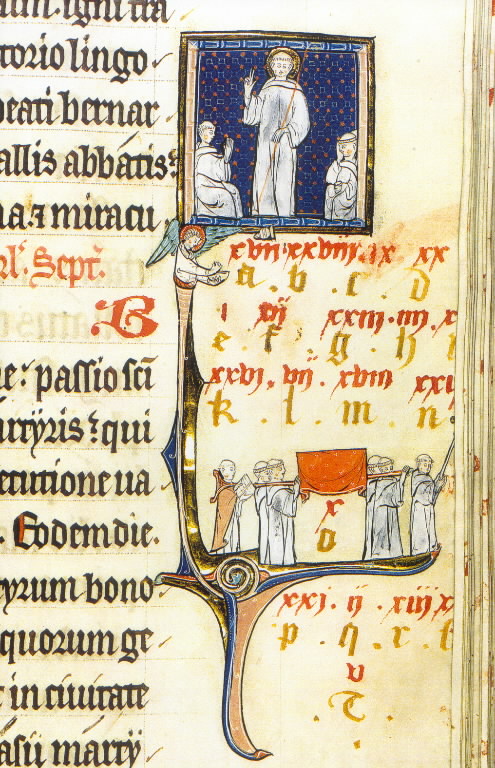 igni tra
torio lingo
beati bernar
allis abbatis
na. ⁊ miracu
kl. Sept.
B
e: passio sci
artyris: qui
ecutione ua
. Eodem die.
tyrum bono
quorum ge
in ciuitate
asii marty
xvii. xxviii. ix xx
a. b. c. d
i xii xxiii. iiii. x
e. f. g. h
xxvi. vii. xviii xxi
k. l. m. n
x
o
xxi. ii. xiii x
p. q. r. s
v
. t .